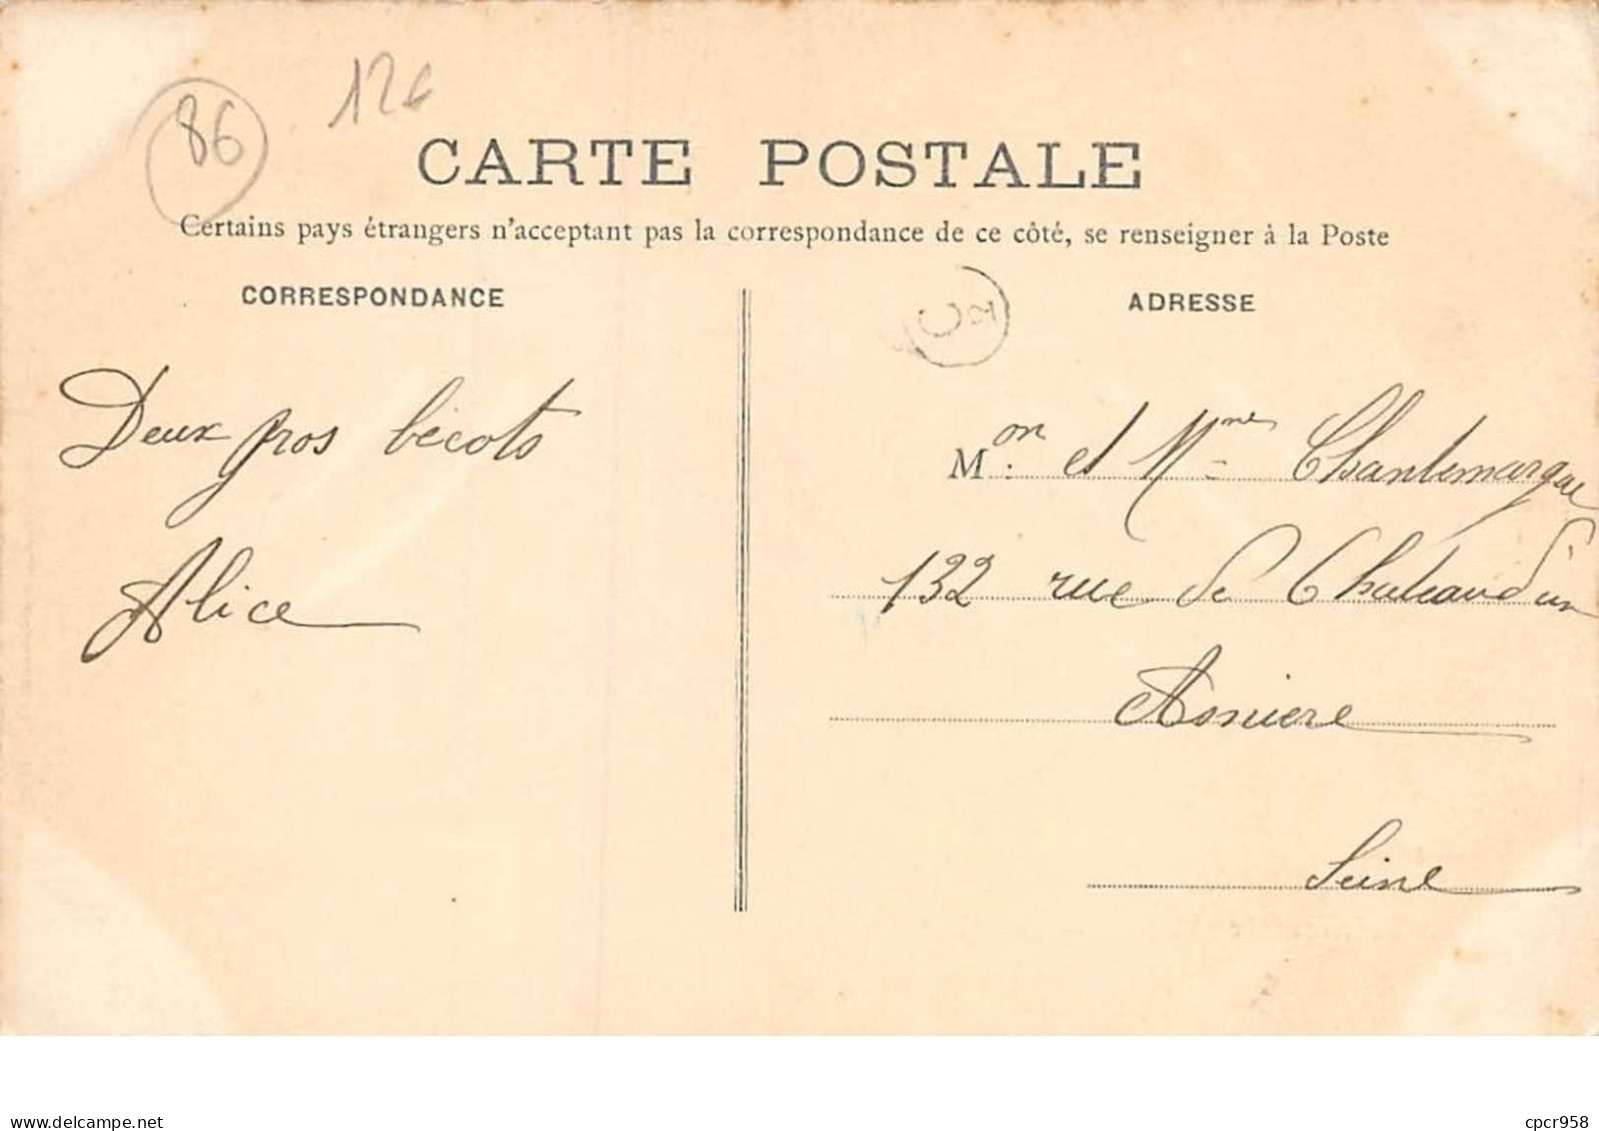 86
12€
CARTE POSTALE
Certains pays étrangers n'acceptant pas la correspondance de ce côté, se renseigner à la Poste
CORRESPONDANCE
ADRESSE
Deux gros becots
Alice
Mon. et Mme Chantemargue
132 rue de Chateaudun
Asniere
Seine
www.delcampe.net
cpcr958